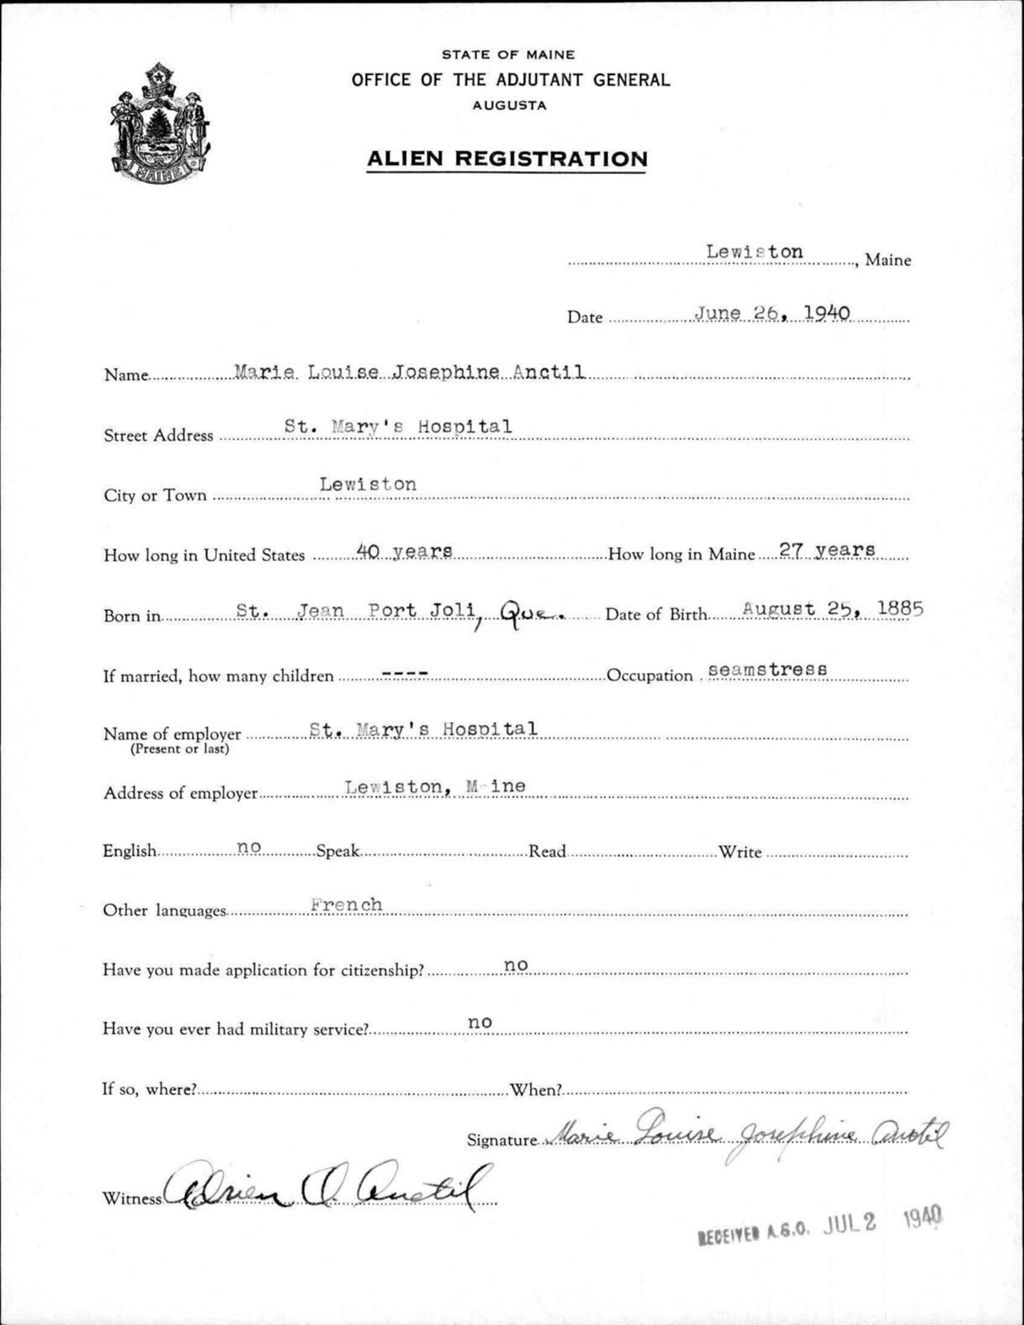 STATE OF MAINE
OFFICE OF THE ADJUTANT GENERAL
AUGUSTA
ALIEN REGISTRATION
MAINE
Lewiston, Maine
Date June 26, 1940
Name Marie Louise Josephine Anctil
Street Address St. Mary's Hospital
City or Town Lewiston
How long in United States 40 years How long in Maine 27 years
Born in St. Jean Port Joli, Que. Date of Birth August 25, 1885
If married, how many children ---- Occupation seamstress
Name of employer St. Mary's Hospital
(Present or last)
Address of employer Lewiston, M ine
English no Speak Read Write
Other languages French
Have you made application for citizenship? no
Have you ever had military service? no
If so, where? When?
Signature Marie Louise Josephine Anctil
Witness Adrien O. Anctil
RECEIVED A.G.O. JUL 2 1940